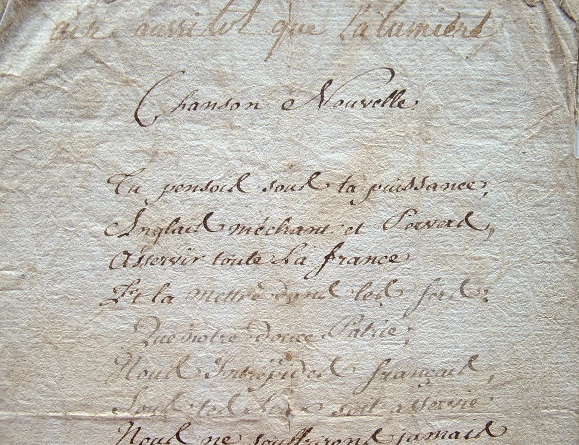 air aussitot que la lumiere
Chanson Nouvelle
Tu pensois sous ta puissance,
Anglais méchant et Pervers,
Asservir toute La france
Et la Mettre dans les fers:
Que notre douce Patrie;
Nous Intrépides français,
Sous tes Loix soit asservie
Nous ne souffrirons jamais